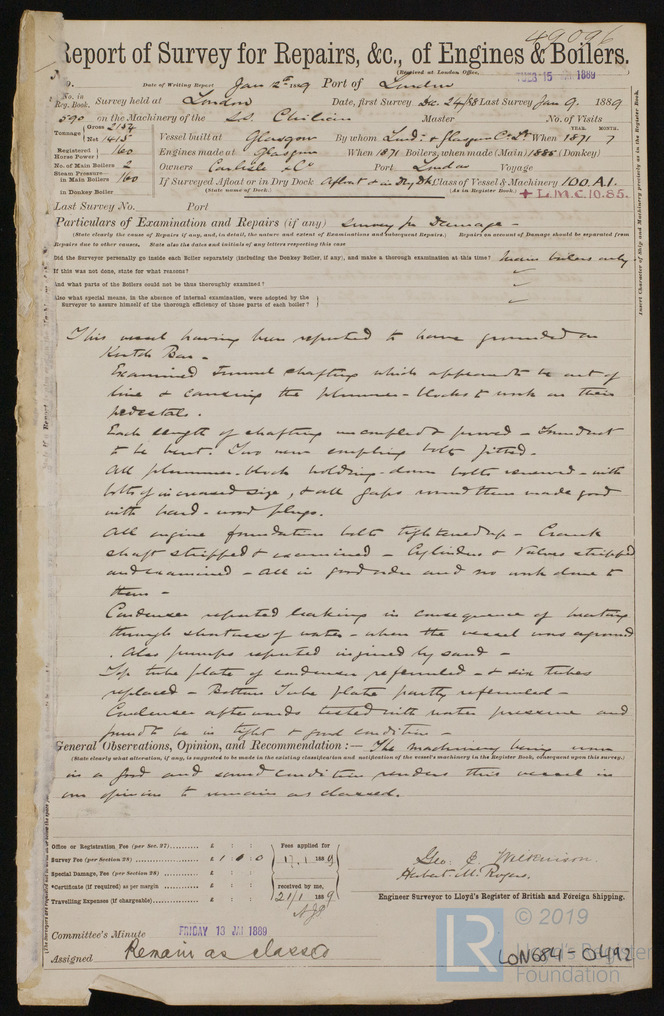 49096
Report of Survey for Repairs, &c., of Engines & Boilers.
(Received at London Office,
TUES 15 JAN 1889
No. Date of Writing Report Jan 12th 1889 Port of London
No. in Reg. Book. Survey held at London Date, first Survey Dec 24/88 Last Survey Jan 9. 1889
590 on the Machinery of the S.S. Master No. of Visits
Tonnage Gross Net 1415
Vessel built at Glasgow By whom Lond. & Glasgow Co. Ld. When 1871 7
YEAR. MONTH.
Registered Horse Power 160 Engines made at Glasgow When 1871 Boilers, when made (Main) 1885 (Donkey)
No. of Main Boilers 2 Owners Carlisle & Co Port London Voyage
Steam Pressure in Main Boilers 160 If Surveyed Afloat or in Dry Dock Afloat & in Dry Dk Class of Vessel & Machinery 100.A1.
(State name of Dock.) (As in Register Book.) + L.M.C. 10.85.
in Donkey Boiler
Last Survey No. Port
Particulars of Examination and Repairs (if any) Survey for Damage -
(State clearly the cause of Repairs if any, and, in detail, the nature and extent of Examinations and subsequent Repairs.) Repairs on account of Damage should be separated from
Repairs due to other causes, State also the dates and initials of any letters respecting this case
Did the Surveyor personally go inside each Boiler separately (including the Donkey Boiler, if any), and make a thorough examination at this time? Main boilers only
If this was not done, state for what reasons?
And what parts of the Boilers could not be thus thoroughly examined?
Also what special means, in the absence of internal examination, were adopted by the
Surveyor to assure himself of the thorough efficiency of those parts of each boiler?
Insert Character of Ship and Machinery precisely as in the Register Book.
This vessel having been reported to have grounded on
Bar -
Examined Tunnel shafting which appeared to be out of
line & causing the plummer-blocks to work on their
pedestals.
Each length of shafting uncoupled & proved - Found not
to be bent. Two new coupling bolts fitted.
All plummer-block holding-down bolts renewed - with
bolts of increased size, & all gaps round them made good
with hard-wood plugs.
All engine foundation bolts tightened up - Crank
shaft stripped & examined - Cylinders & Valves stripped
and examined - All in good order and no work done to
them -
Condenser reported leaking in consequence of heating
through shortness of water - when the vessel was aground
. Also pumps reported injured by sand -
Top tube plate of condenser referruled - & six tubes
replaced - Bottom Tube plate partly referruled -
Condenser afterwards tested with water pressure and
found to be in tight & good condition -
General Observations, Opinion, and Recommendation :— The machinery being now
(State clearly what alteration, if any, is suggested to be made in the existing classification and notification of the vessel's machinery in the Register Book, consequent upon this survey.)
in a good and sound condition renders this vessel in
our opinion to remain as classed.
Office or Registration Fee (per Sec. 27) £ : :
Survey Fee (per Section 28) £ 1 : 0 : 0
Special Damage, Fee (per Section 28) £ : :
*Certificate (if required) as per margin £ : :
Travelling Expenses (if chargeable) £ : :
Fees applied for
17.1.1889
received by me,
21/1 1889
Geo. C. Wilkinson.
Herbert M. Rogers.
Engineer Surveyor to Lloyd's Register of British and Foreign Shipping.
Committee's Minute FRIDAY 18 JAN 1889
Assigned Remain as classed
LR
© 2019
Lloyd's Register
Foundation
LON684-0492